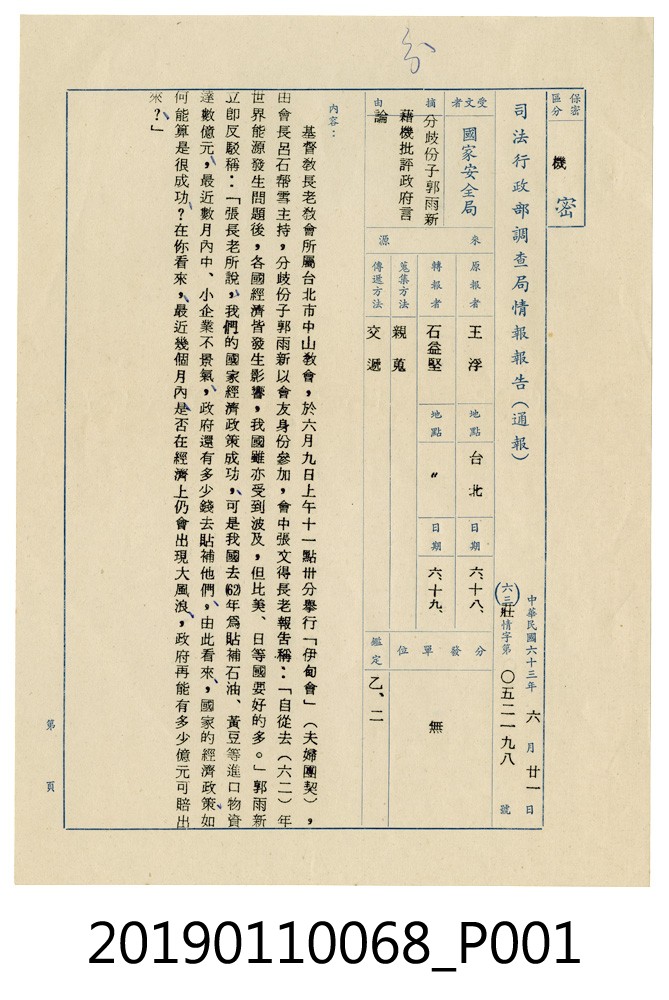 保密區分
機密
司法行政部調查局情報報告（通報）
中華民國六十三年六月廿一日
（六三）壯情字第〇五二一九八號
受文者
國家安全局
摘由
分歧份子郭雨新
藉機批評政府言
論
來源
原報者
王浮
地點
台北
日期
六、十八、
轉報者
石益堅
地點
〃
日期
六、十九、
蒐集方法
親蒐
傳遞方法
交遞
分發單位
無
鑑定
乙、二
內容：
基督教長老教會所屬台北市中山教會，於六月九日上午十一點卅分舉行「伊甸會」（夫婦團契），
由會長呂石帮雪主持，分歧份子郭雨新以會友身份參加，會中張文得長老報告稱：「自從去（六二）年
世界能源發生問題後，各國經濟皆發生影響，我國雖亦受到波及，但比美、日等國要好的多。」郭雨新
立即反駁稱：「張長老所說，我們的國家經濟政策成功，可是我國去(62)年為貼補石油、黃豆等進口物資
達數億元，最近數月內中、小企業不景氣，政府還有多少錢去貼補他們，由此看來，國家的經濟政策如
何能算是很成功？在你看來，最近幾個月內是否在經濟上仍會出現大風浪，政府再能有多少億元可賠出
來？」
第 頁
20190110068_P001